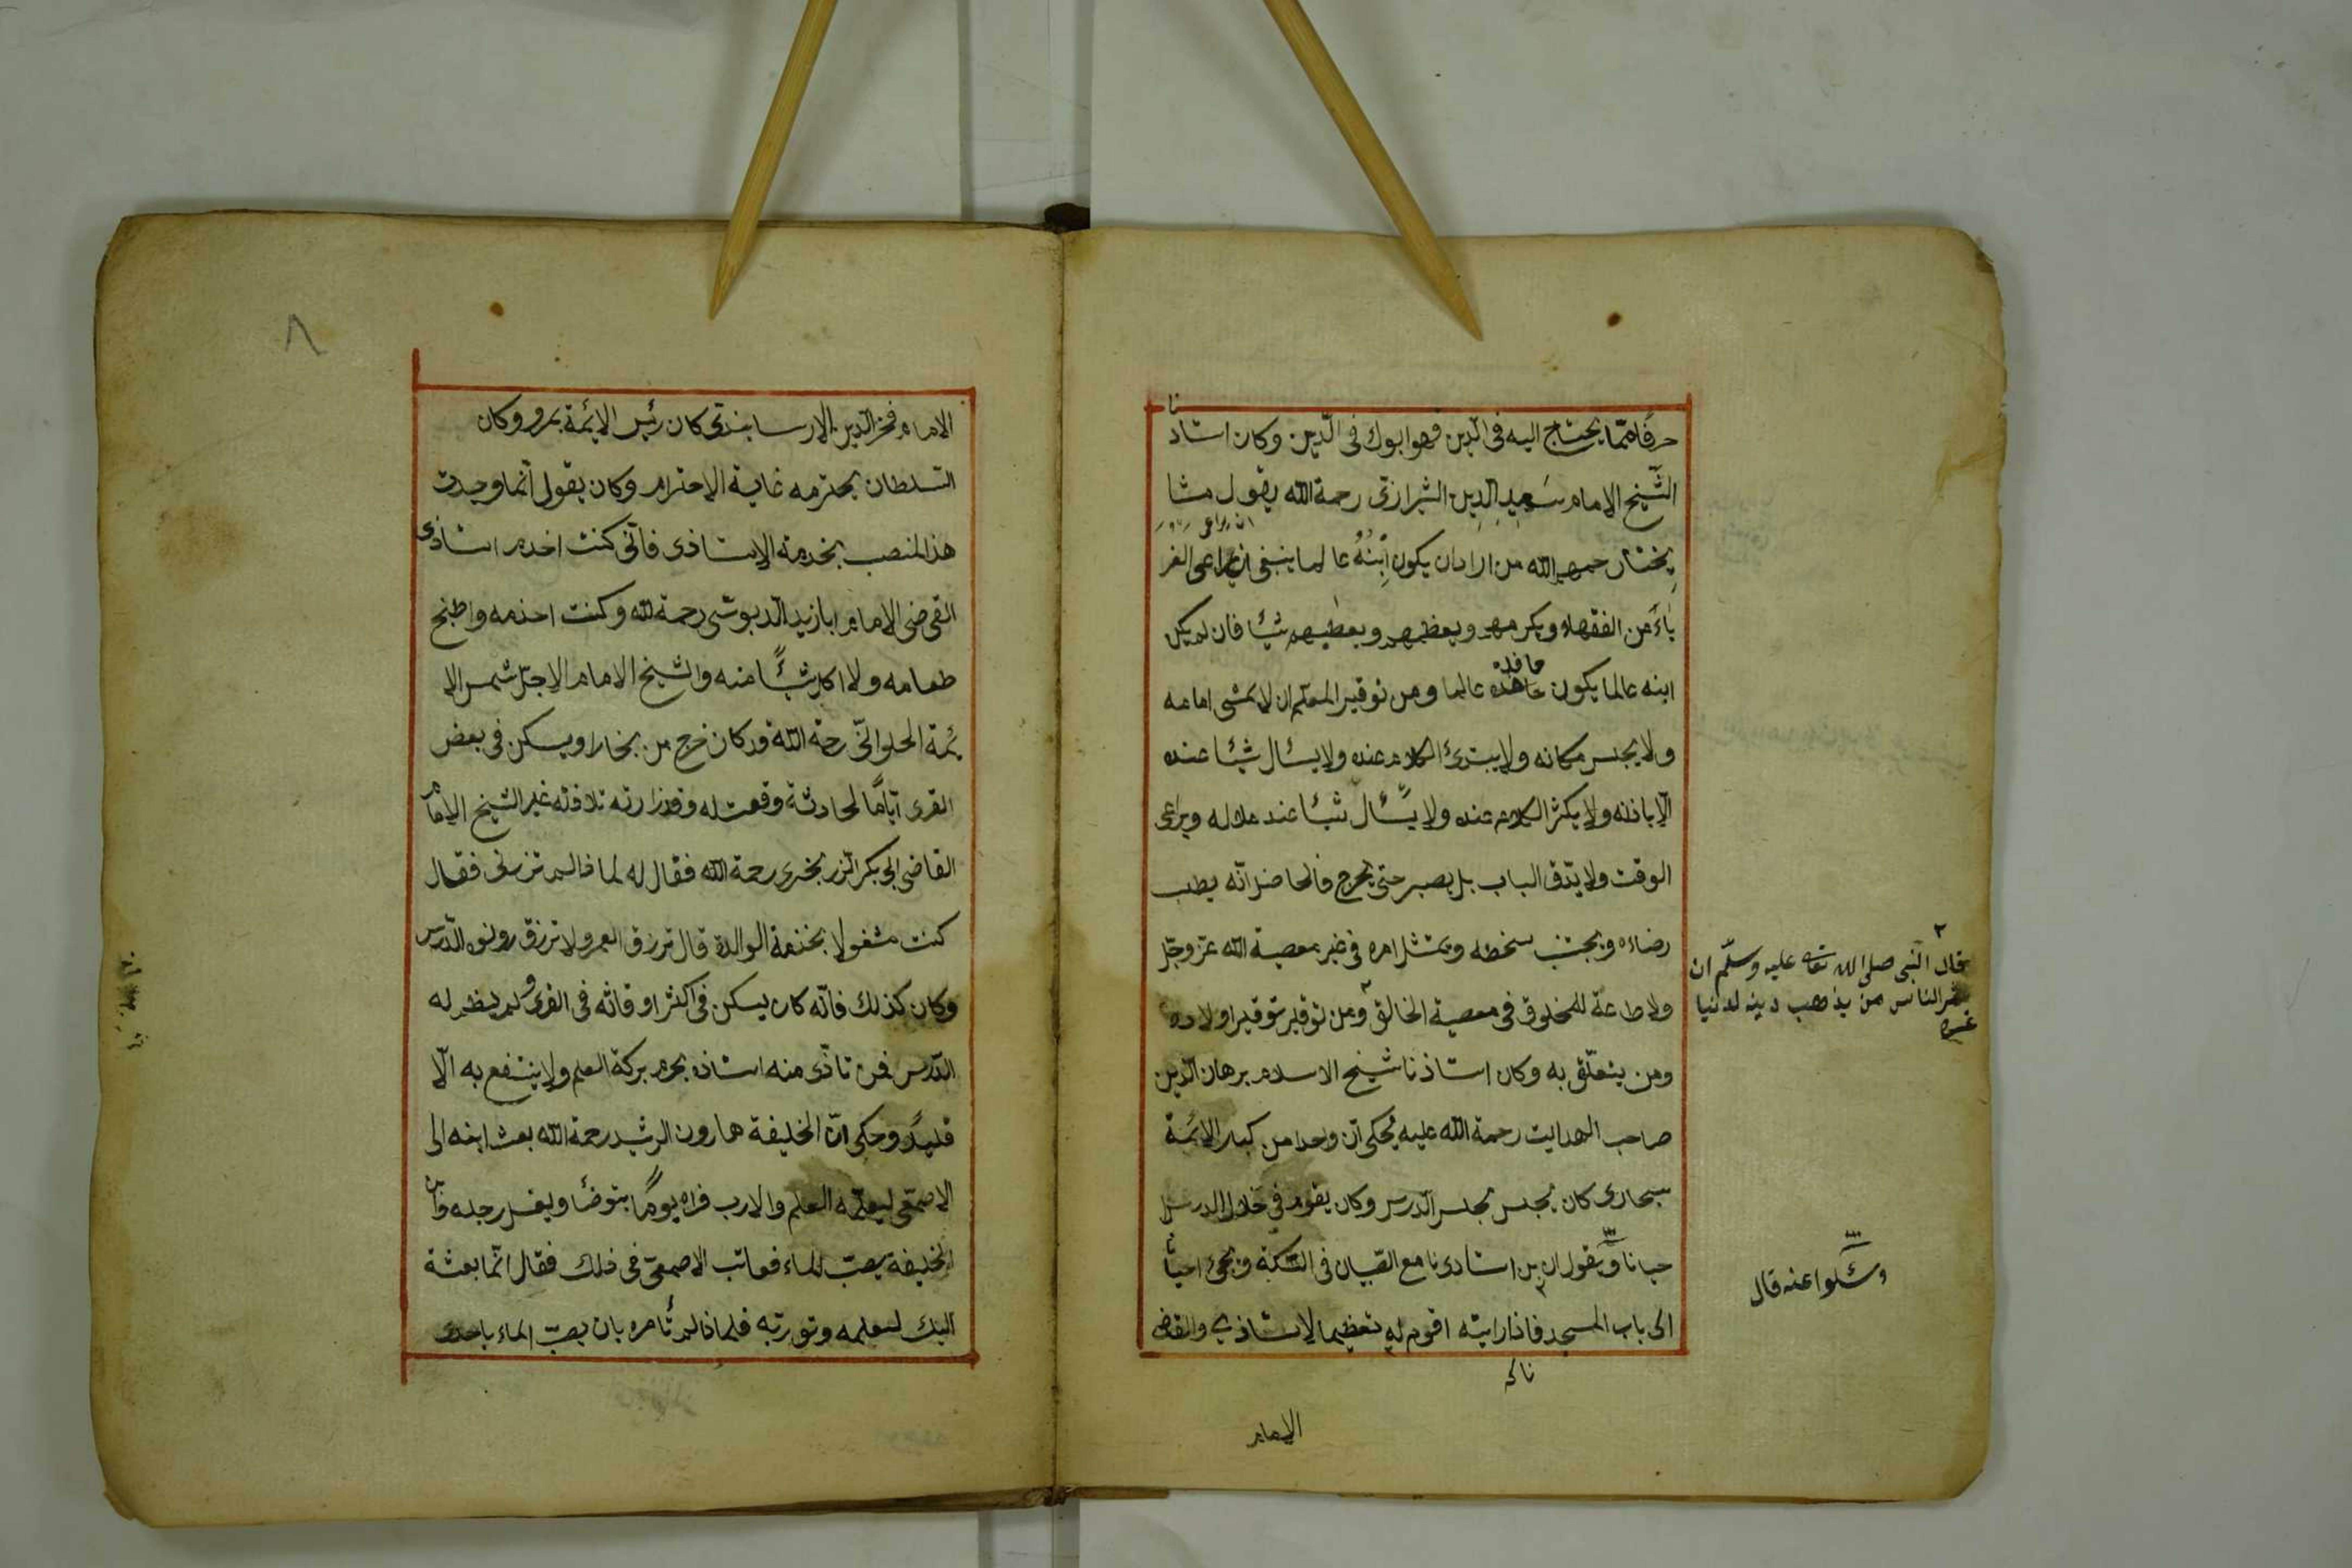 حرفا ممّا يحتاج اليه فى الدّين فهو ابوك فى الّدين وكان استاذنا
الشّيخ الامام سَعِيدِ الدِينِ الشيرازىّ رحمة اللّه يقول مشا
يختنا رحمهم اللّه من اراد ان يكون اِبْنُهُ عالما ينبغى ان يراعى الغر
باءَ من الفقهاء ويكرمهم ويعظمهم ويعطيهم شيئا فان لم يكن
ابنه عالما يكون حافده عالما ومن توقير المعلّم ان لا يمشى امامه
ولا يجلس مكانه ولا يبتدئ الكلام عنده ولا يسئال شيئا عنده
الّا باذنه ولا يكثر الكلام عنده ولا يسئال شيئا عند ملاله ويراعى
الوقت ولا يدّق الباب بل يصبر حتى يخرج فالحاصل انّه يطب
رضاءه ويجتنب سخطه ويمتثل امره فى غير معصية اللّه عزّ وجلّ
ولا طاعة للمخلوق فى معصية الخالق ٢ ومن توقيره توقير اولاده
ومن يتعلّق به وكان استاذنا شيخ الاسلام برهان الدّين
صاحب الهدايت رحمة اللّه عليه يُحكى انّ واحدا من كبار الائمة
ببخارى كان يجلس مجلس الدّرس وكان يقوم فى خلال الدرس ا
حيانا ويقول ان بن استادى نا مع الصّبيان فى السّكة ويجئ احيانا
الى باب المسجد فاذا رايته اقوم له تعظيما لاستاذى والقاضى
نا له
الامام
٢
قال النّبى صلى الله تعالى عليه وسلّم ان
شر الناس من يذهب دينه لدنيا
غيره
وسئلوا عنه قال
٨
الامام فخر الدّين الارسابندى كان رئيس الائمة بمرو وكان
السّلطان يحترمه غاية الاحترام وكان يقول انّما وجدت
هذ المنصب بخدمة الاستاذى فانّى كنت اخدم استاذى
القى ضى الامام ابا زيد الدّبوسّى رحمة للّه وكنت اخذمه واطبخ
طعامه ولا اكل شيئًا منه والشيخ الامام الاجلّ شمس الا
ئمة الحلوانّى رحمة اللّه قد كان خرج من بخارا ويسكن فى بعض
القرى ايّامًا لحادثة وقعت له وقد زارته تلامذته غير الشيخ الامام
القاضى ابى بكر الزّرنجرى رحمة اللّه فقال له لماذا لم تزرنى فقال
كنت مشغولا بخذمة الوالدة قال ترزق العمر ولا ترزق رونق الدّرس
وكان كذلك فانّه كان يسكن فى اكثر اوقاته فى القرى ولم ينظم له
الدّرس فمن تاذّى منه استاذه يحرم بركة العلم ولا ينتفع به الّا
قليلًا وحكى انّ الخليفة هارون الرشيد رحمة اللّه بعث ابنه الى
الاصمعّى ليعلّمه العلم والادب فراه يومًا يتوضّا ويغسل رجله وابن
الخليفة يصبّ الماء فعاتب الاصمعىّ فى ذلك فقال انّما بعثة
اليك لتعلمه وتوربّه فلماذا لم تأمره بان يصبّ الماء باحدى